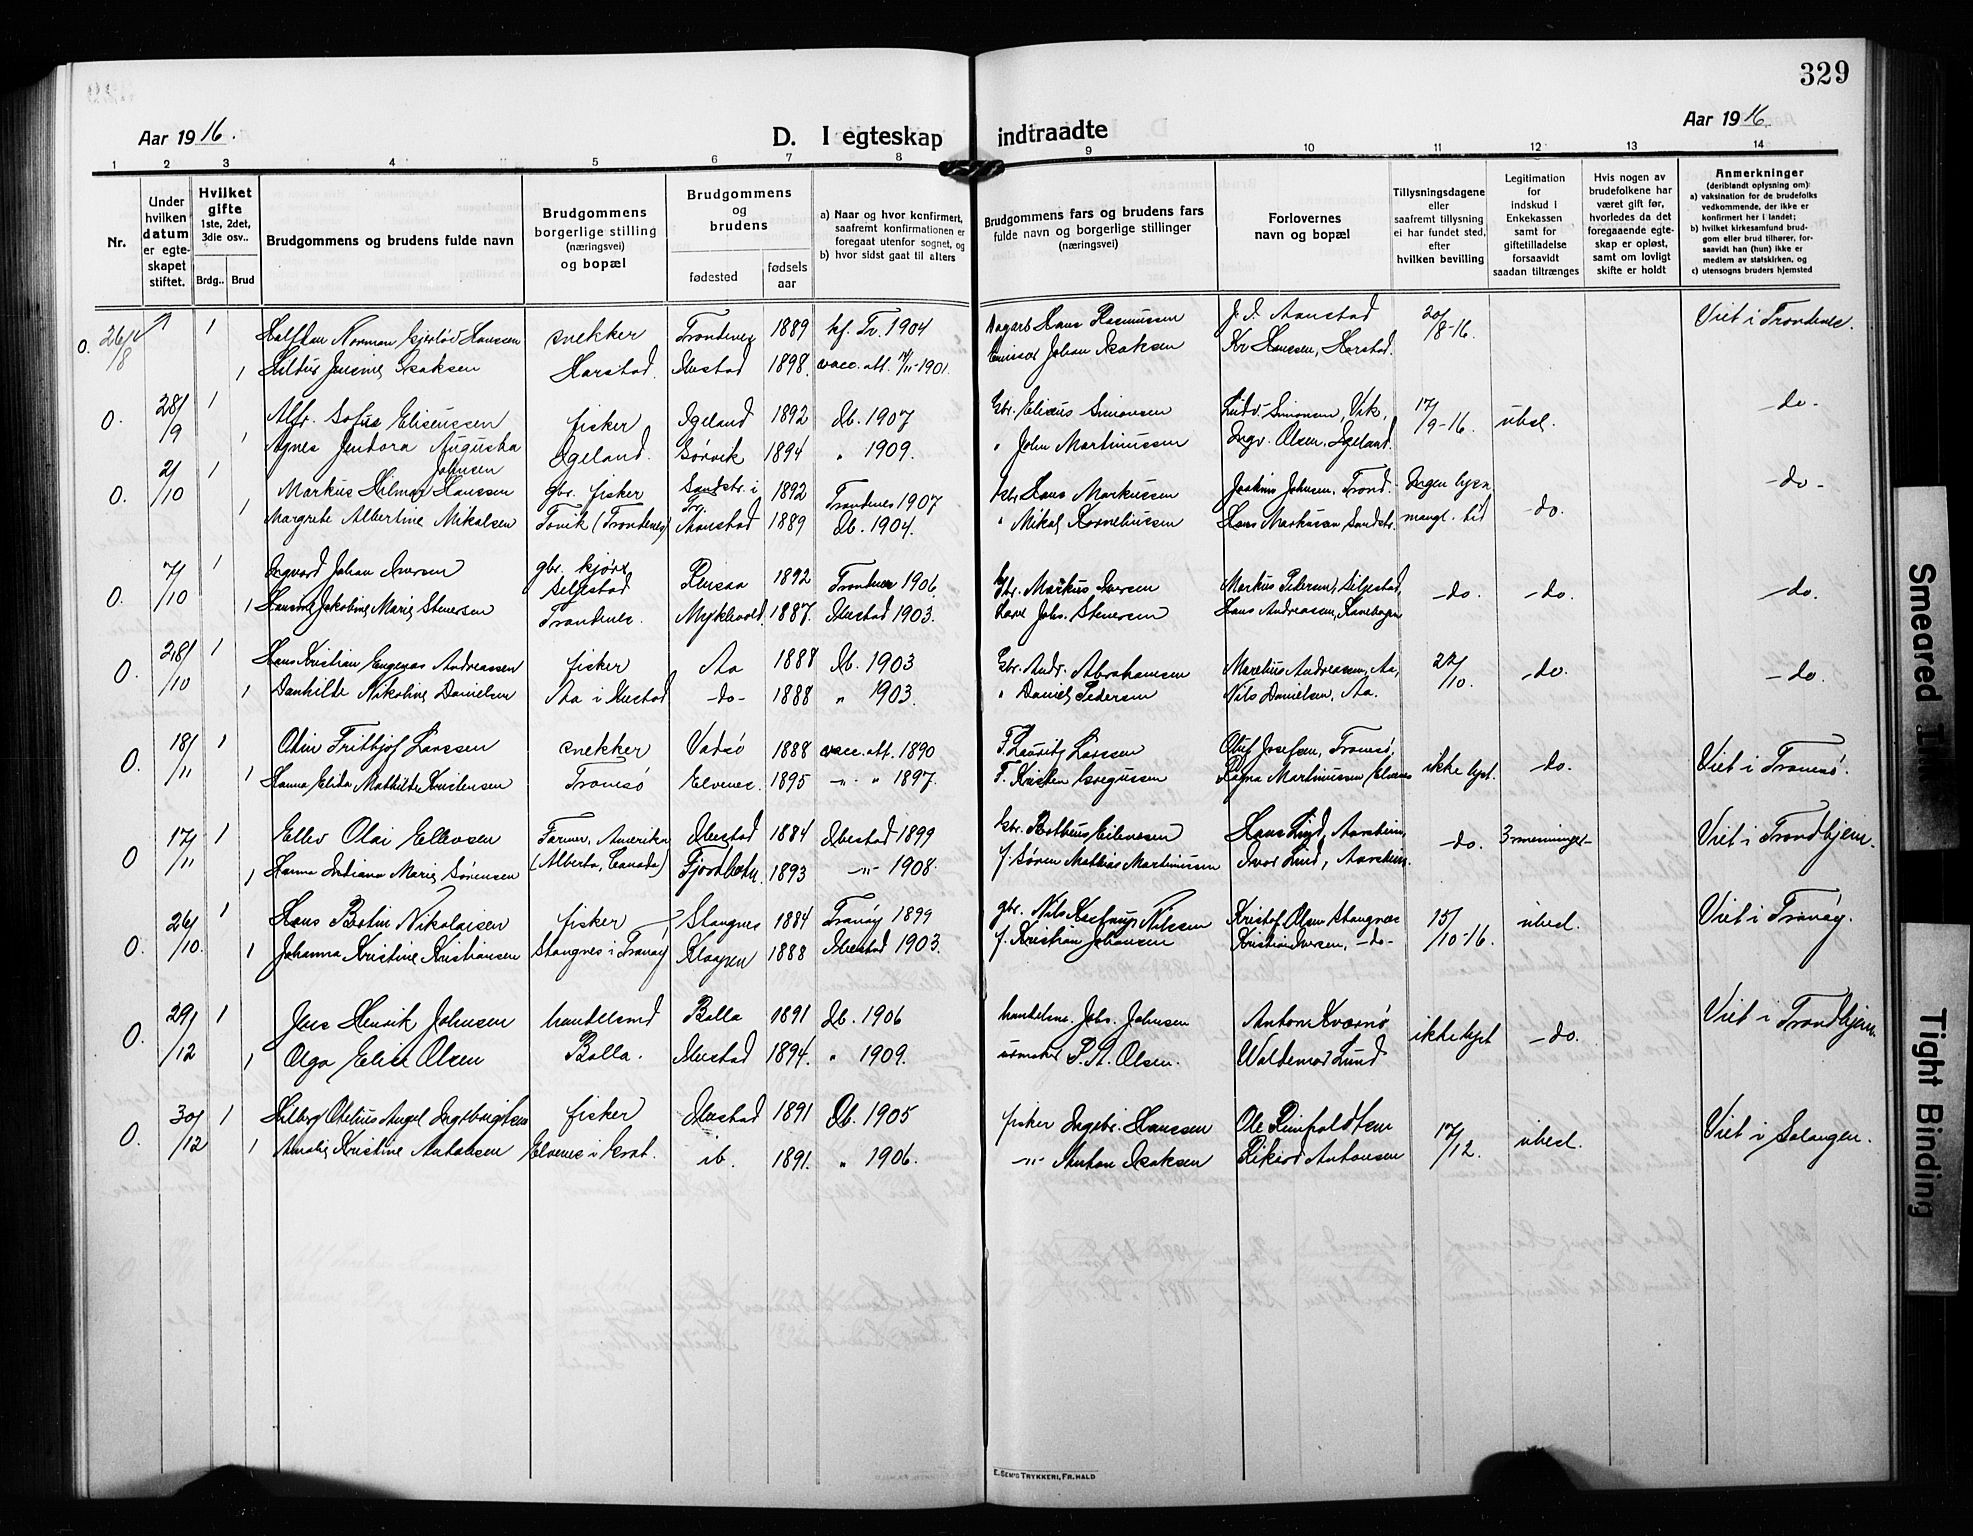 329
Aar 1916.
D. I egteskap indtraadte
Aar 1916.
1 2 3 4 5 6 7 8 9 10 11 12 13 14
Nr.
Under hvilken datum er egteskapet stiftet.
Hvilket gifte 1ste, 2det, 3die osv..
Brdg.. Brud
Brudgommens og brudens fulde navn
Brudgommens borgerlige stilling (næringsvei) og bopæl
Brudgommens og brudens
fødested
fødsels aar
a) Naar og hvor konfirmert, saafremt konfirmationen er foregaat utenfor sognet, og
b) hvor sidst gaat til alters
Brudgommens fars og brudens fars fulde navn og borgerlige stillinger (næringsvei)
Forlovernes navn og bopæl
Tillysningsdagene eller saafremt tillysning ei har fundet sted, efter hvilken bevilling
Legitimation for indskud i Enkekassen samt for giftetilladelse forsaavidt saadan tiltrænges
Hvis nogen av brudefolkene har været gift før, hvorledes da det foregaaende egteskap er opløst, samt om lovligt skifte er holdt
Anmerkninger (deriblandt oplysning om):
a) vaksination for de brudefolks vedkommende, der ikke er konfirmert her i landet;
b) hvilket kirkesamfund brudgom eller brud tilhører, forsaavidt han (hun) ikke er medlem av statskirken, og
c) utensogns bruders hjemsted
0. 26/8 1 Halfdan Norman Hanssen snekker Trondenes 1889 kf. Tr. 1904 Hans Rasmussen J. Aanstad 20/8-16. Viet i Trondenes.
1 Jensine Isaksen Harstad. Ibestad 1898. vacc. att. 1901. Johan Isaksen Kr Hanssen, Harstad.
0. 28/9 1 Alfr. Sofus Eliseussen fisker Igeland 1892 Ib. 1907 Gbr. Eliseus Simonsen Ludv. Simonsen, Vik, 17/9-16. ubesl. -do-
1 Agnes Jendora Augusta Johnsen Igeland. Gørvik 1894 " 1909. " John Martinussen Ingv. Olsen, Igeland.
0. 2/10 1 Markus Hilmar Hanssen gbr. fisker Sandstr. i Tr. 1892 Trondenes 1907 Gbr Hans Markussen Joakim Johnsen, Trond. Ingen lysn. -do. -do-
1 Margrete Albertine Mikalsen Tovik (Trondenes) Aanstad 1889 Ib. 1904. " Mikal Kornelinssen Hans Markussen, Sandstr. mangl. tid
0. 7/10 1 Ingvard Johan Iversen gbr. Seljestad Rensaa 1892 Trondenes 1906. Gbr. Markus Iversen Markus Pedersen, Seljestad, -do. -do. -do.
1 Hansine Jakobine Marie Stenersen Trondenes. Myklevold. 1887. Ibestad 1903. Johs. Stenersen Hans Andreassen,
0. 28/10 1 Hans Kristian Eugenas Andreassen fisker Aa 1888 Ib. 1903 Gbr. Andr. Abrahamsen Marelius Andreassen, Aa, 22/10. -do. -do.
1 Danhilde Nikoline Danielsen Aa i Ibestad -do- 1888 " 1903. " Daniel Pedersen Nils Danielsen, Aa.
0. 18/11 1 Odin Fritbjof Larssen snekker Vadsø 1888 vacc. att. 1890 F. Lauritz Larssen Oluf Josefsen, Tromsø, ikke lyst. -do. Viet i Tromsø.
1 Hanna Elida Mathilde Kristensen Tromsø Elvenes 1895 -"- " 1897. F. Kristen Gregussen Ragna Martinussen Elvenes
0 17/11 1 Ellev Olai Ellevsen Farmer, Amerika Ibestad 1884 Ibestad 1899 Gbr. Hans Lind, Aarstein, -do. 3menninger Viet i Trondhjem.
1 Hanna Indiana Marie Sørensen (Alberta, Canada) Fjordbotn. 1893 -"- 1908. f. Søren Mathias Martinussen Ivar Lund, Aarstein.
0. 26/10. 1 Hans Bertin Nikolaisen fisker Stangnes 1884 Tranøy 1899 gbr. Nils Nilssen Kristof. Olsen Stangnes 15/10-16. ubesl. Viet i Tranøy.
1 Johanna Kristine Kristiansen Stangnes i Tranøy Klaapen 1888 Ibestad 1903. f. Kristian Johansen Kristian Iversen, -do-
0. 29/12 1 Jens Henrik Johnsen handelsmd Balla 1891 Ib. 1906 handelsm. Johs. Johnsen Anton Kværnø ikke lyst -do. Viet i Trondhjem.
1 Olga Elise Olsen Balla. Ibestad 1894. " 1909. urmaker P. A. Olsen. Waldemar Lund
0. 30/12 1 Hilberg Otelius Angel Ingebrigtsen fisker Ibestad 1891 Ib. 1905 fisker Ingebr. Hanssen Ole Reinholdtsen 17/12. ubesl. Viet i Salangen.
1 Amalie Kristine Antonsen Elvenes i Grat. ib. 1891. " 1906. -"- Anton Isaksen Rikard Antonsen
E. SEM'S TRYKKERI, FR.HALD
Smeared Ink
Tight Binding